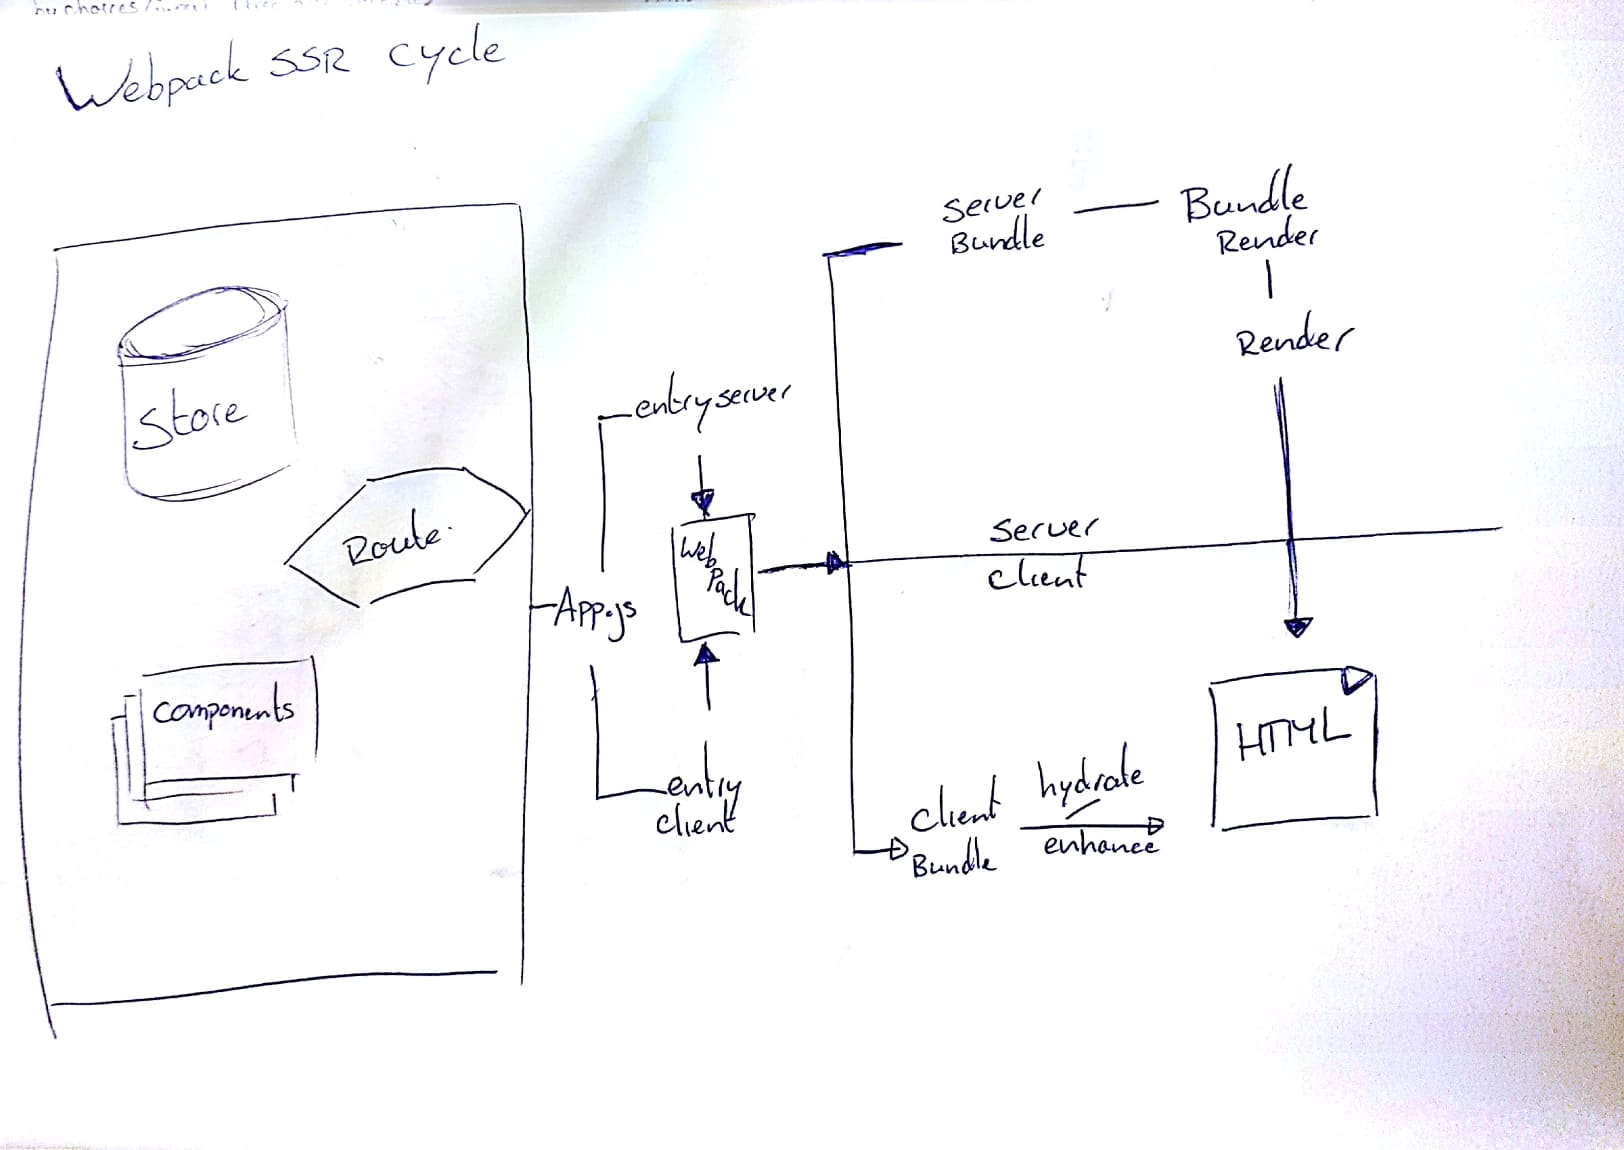 Webpack SSR Cycle
Store
Route
Components
App.js
entry server
Web
Pack
entry
client
Server
Bundle
Bundle
Render
Render
Server
Client
Client
Bundle
hydrate
enhance
HTML